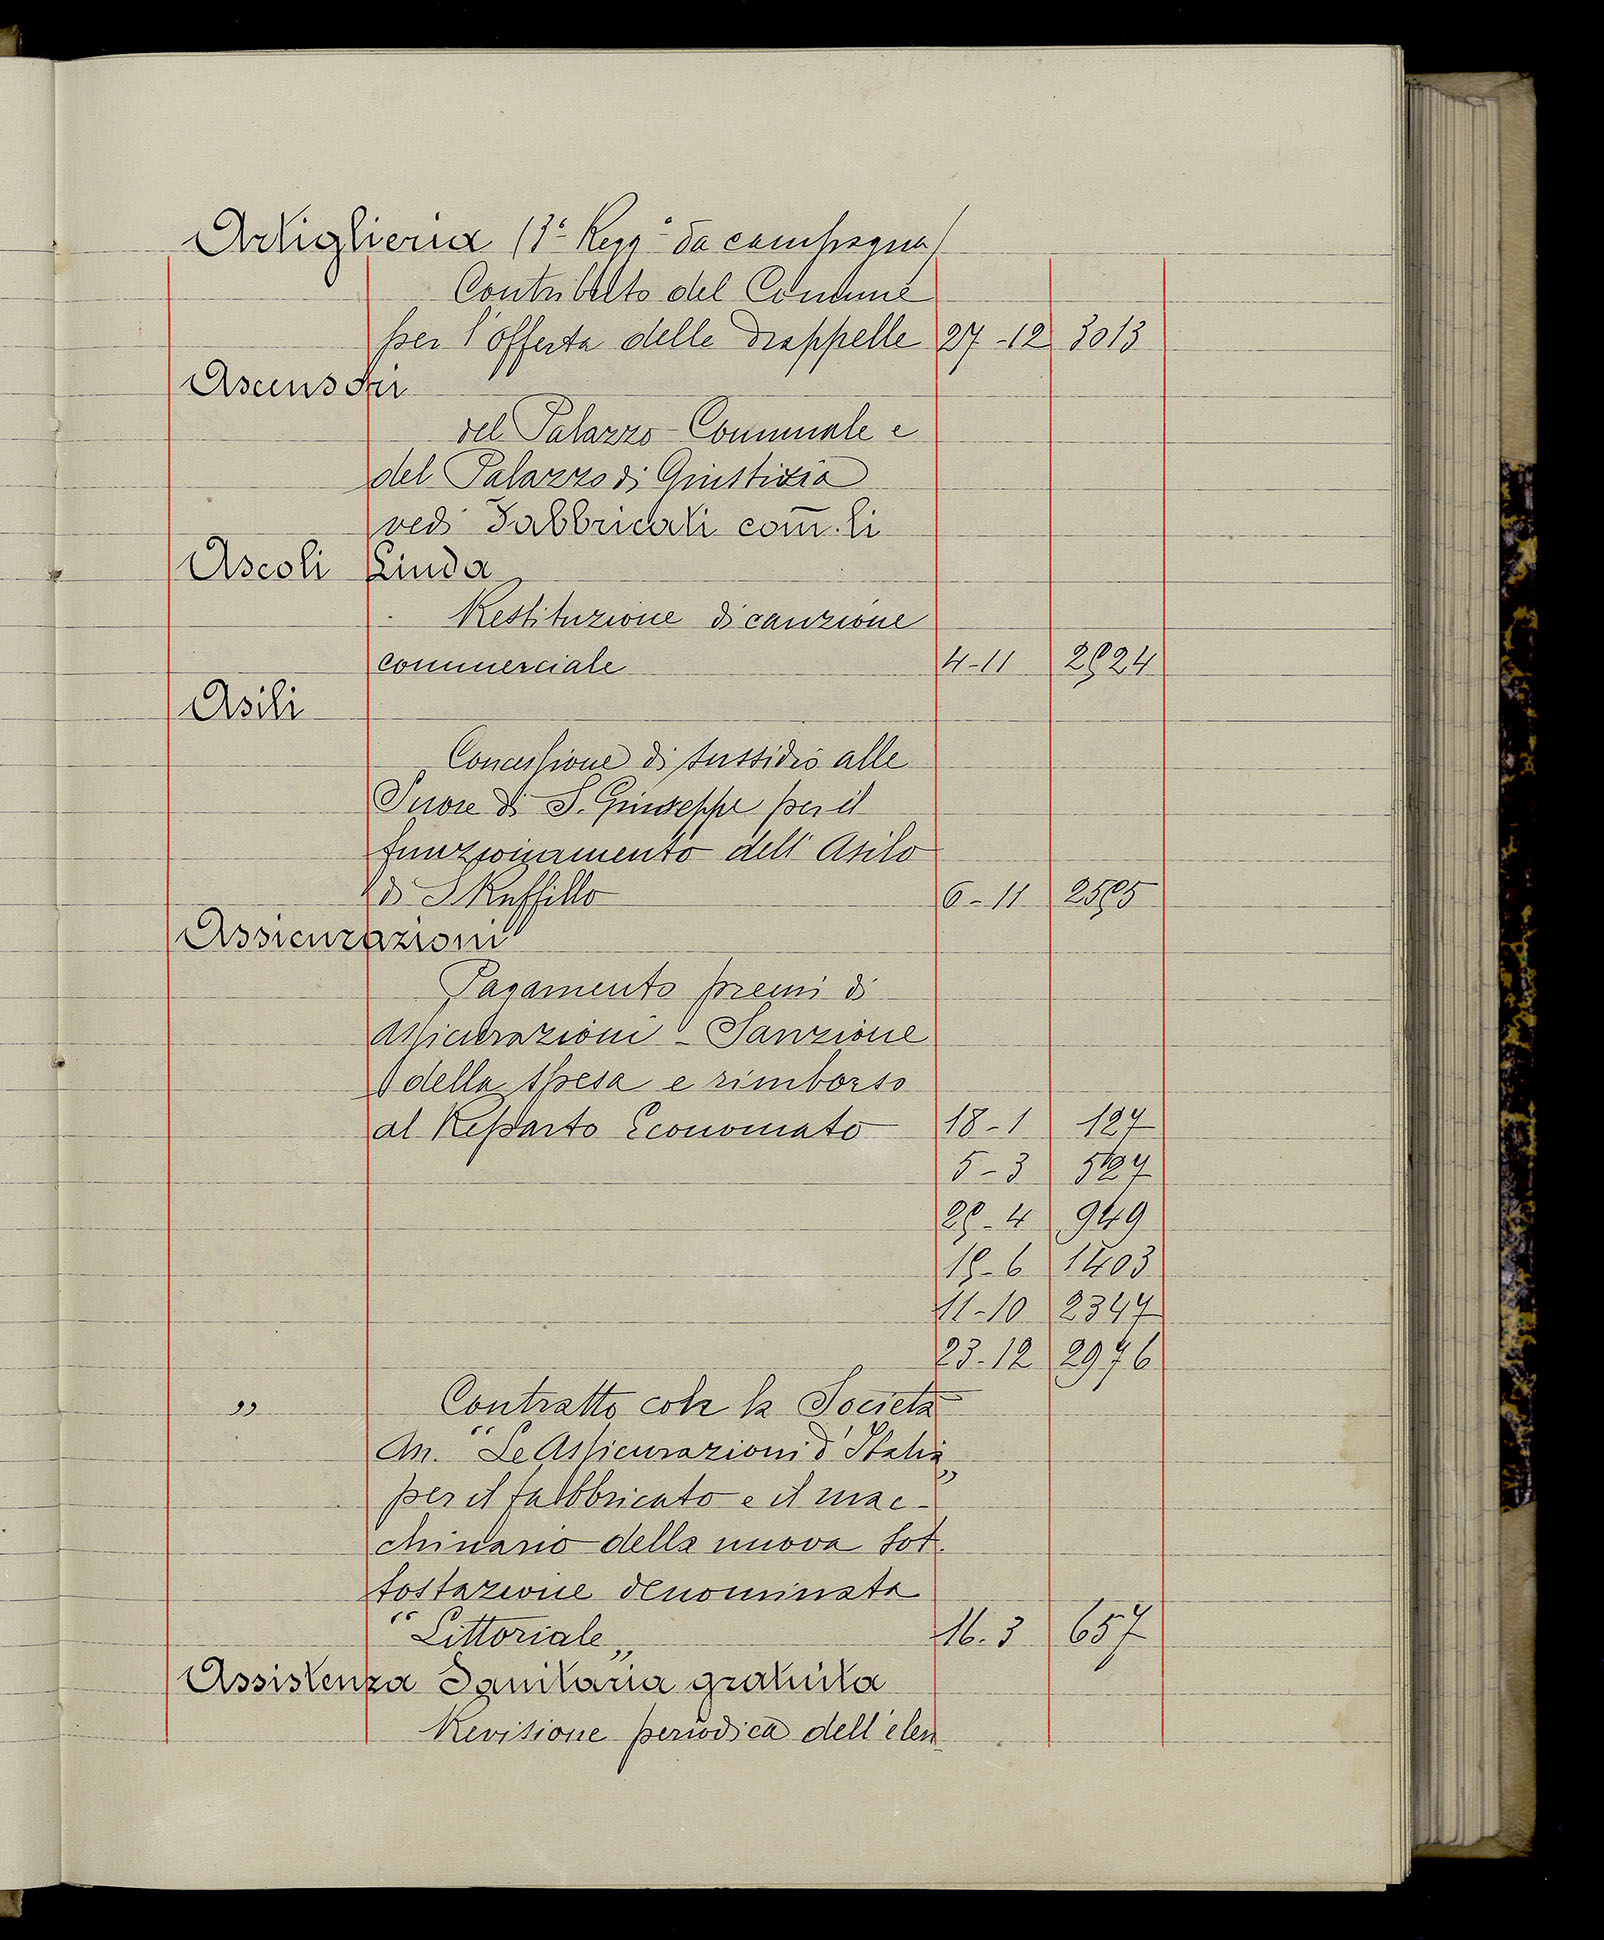 Artiglieria (3° Regg° da campagna)
Contributo del Comune
per l'offerta delle drappelle 27-12 3013
Ascensori
del Palazzo Comunale e
del Palazzo di Giustizia
vedi Fabbricati com.li
Ascoli Linda
Restituzione di cauzione
commerciale 4-11 2524
Asili
Concessione di sussidio alle
Suore di S. Giuseppe per il
funzionamento dell'Asilo
di S Ruffillo 6-11 2555
Assicurazioni
Pagamento premi di
assicurazioni - Sanzione
della spesa e rimborso
al Reparto Economato 18-1 127
5-3 527
25-4 949
15-6 1403
11-10 2347
23-12 2976
" Contratto con la Società
An. "Le Assicurazioni d'Italia„
per il fabbricato e il mac-
chinario della nuova sot-
tostazione denominata
"Littoriale„ 16-3 657
Assistenza Sanitaria gratuita
Revisione periodica dell'elen